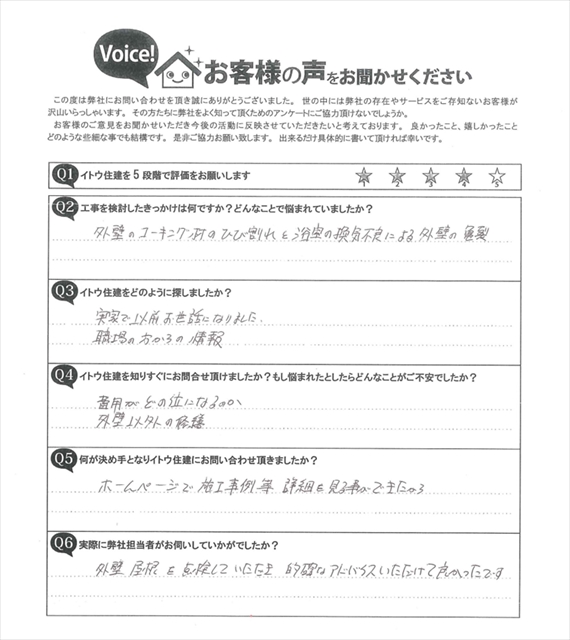 Voice!
お客様の声をお聞かせください
この度は弊社にお問い合わせを頂き誠にありがとうございました。 世の中には弊社の存在やサービスをご存知ないお客様が
沢山いらっしゃいます。 その方たちに弊社をよく知って頂くためのアンケートにご協力頂けないでしょうか。
お客様のご意見をお聞かせいただき今後の活動に反映させていただきたいと考えております。 良かったこと、嬉しかったこと
どのような些細な事でも結構です。 是非ご協力お願い致します。 出来るだけ具体的に書いて頂ければ幸いです。
Q1 イトウ住建を5段階で評価をお願いします
1 2 3 4 5
Q2 工事を検討したきっかけは何ですか？どんなことで悩まれていましたか？
外壁のコーキング材のひび割れと浴室の換気不良による外壁の亀裂
Q3 イトウ住建をどのように探しましたか？
実家で以前お世話になりました.
職場の方からの情報
Q4 イトウ住建を知りすぐにお問合せ頂けましたか？もし悩まれたとしたらどんなことがご不安でしたか？
費用がどの位になるのか
外壁以外の修繕
Q5 何が決め手となりイトウ住建にお問い合わせ頂きましたか？
ホームページで施工事例等 詳細を見る事ができたから
Q6 実際に弊社担当者がお伺いしていかがでしたか？
外壁 屋根を点検していただき 的確なアドバイスいただけて良かったです